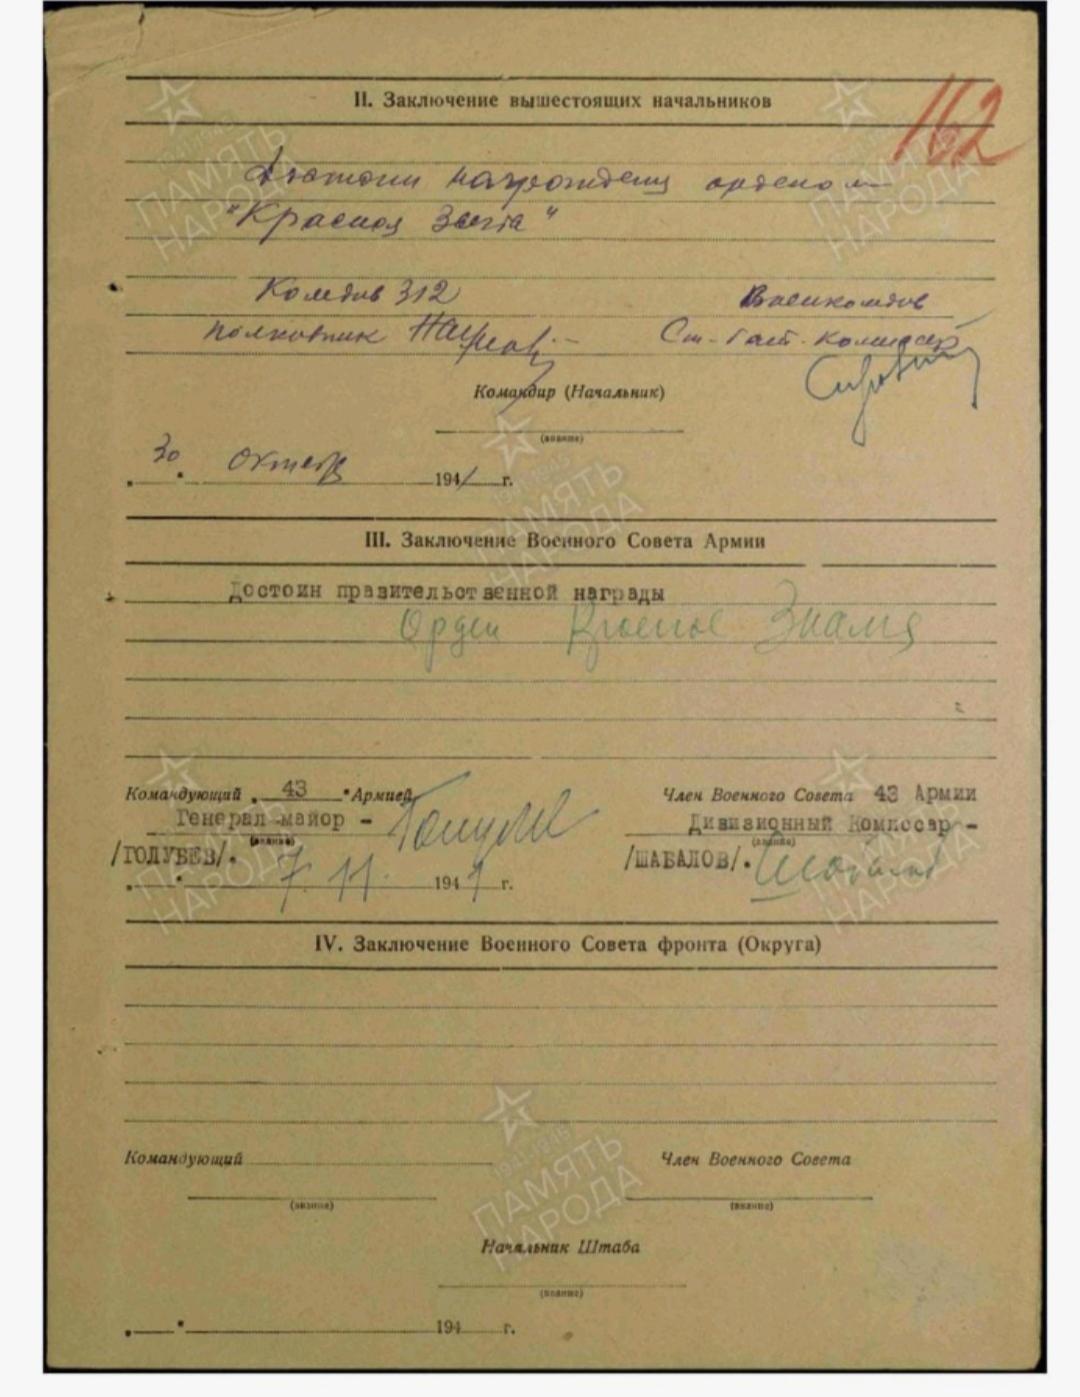 II. Заключение вышестоящих начальников
162
Достоин награждения орденом
"Красная Звезда"
Комдив 312 Военкомдив
полковник Наумов Ст. бат. комиссар
Командир (Начальник)
(звание)
30 октябр 1941 г.
III. Заключение Военного Совета Армии
Достоин правительственной награды
Орден Красное Знамя
Командующий 43 Армией Член Военного Совета 43 Армии
Генерал-майор - Голубев Дивизионный Комиссар -
(звание) (звание)
/ГОЛУБЕВ/. /ШАБАЛОВ/. Шабалов
7.11. 1941 г.
IV. Заключение Военного Совета фронта (Округа)
Командующий Член Военного Совета
(звание) (звание)
Начальник Штаба
(звание)
194 г.
ПАМЯТЬ НАРОДА
1941-1945